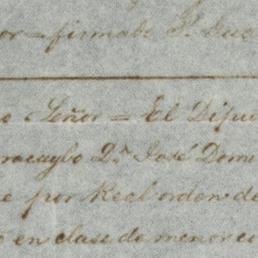 or = firmado P. Gua
o Señor = El Dipu
aracaybo Dn. José Domi
e por Real orden de
o en clase de menor es